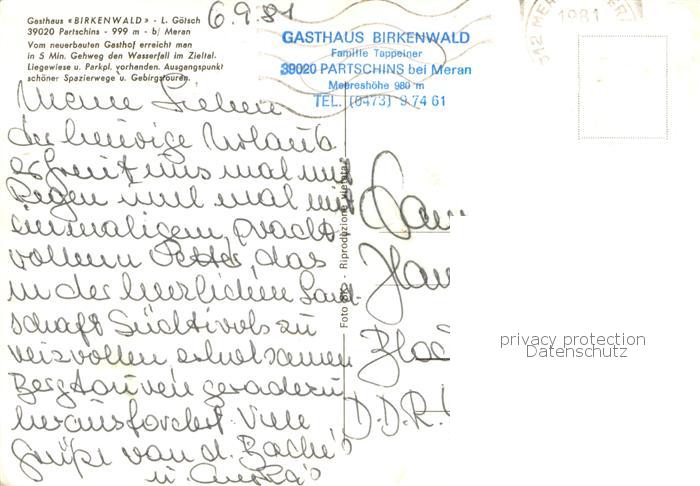 Gasthaus «BIRKENWALD» - L. Götsch
39020 Partschins - 999 m - b/ Meran
Vom neuerbauten Gasthof erreicht man
in 5 Min. Gehweg den Wasserfall im Zieltal.
Liegewiese u. Parkpl. vorhanden. Ausgangspunkt
schöner Spazierwege u. Gebirgstouren.
6.9.81
GASTHAUS BIRKENWALD
Familie Tappeiner
39020 PARTSCHINS bei Meran
Meereshöhe 980 m
TEL. (0473) 9 74 61
1981
Meine Lieben
der heurige Urlaub
erfreut uns mal mit
Regen und mal mit
einmaligem, pracht-
vollem Wetter, das
in der herzlichen Land-
schaft Südtirols zu
reizvollen erholsamen
Bergtouren geraderu
herausfordert. Viele
Grüße van d.
u.
Foto - Riproduzione vietata
D.D.R.
privacy protection
Datenschutz